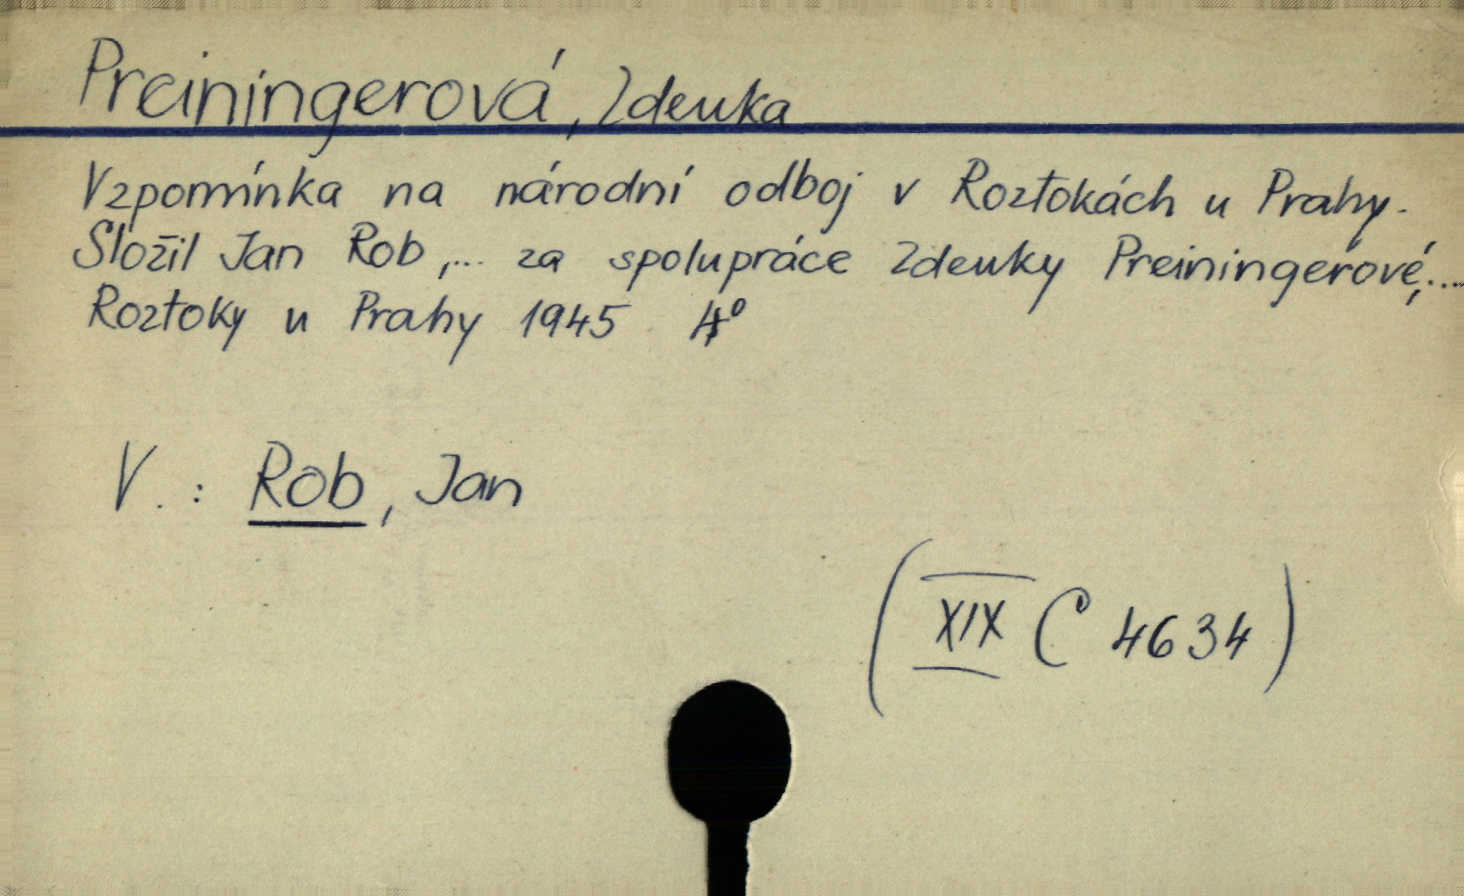 Preiningerová, Zdenka
Vzpomínka na národní odboj v Roztokách u Prahy.
Složil Jan Rob,... za spolupráce Zdenky Preiningerové,...
Roztoky u Prahy 1945 4⁰
V. : Rob, Jan
(XIX C 4634)